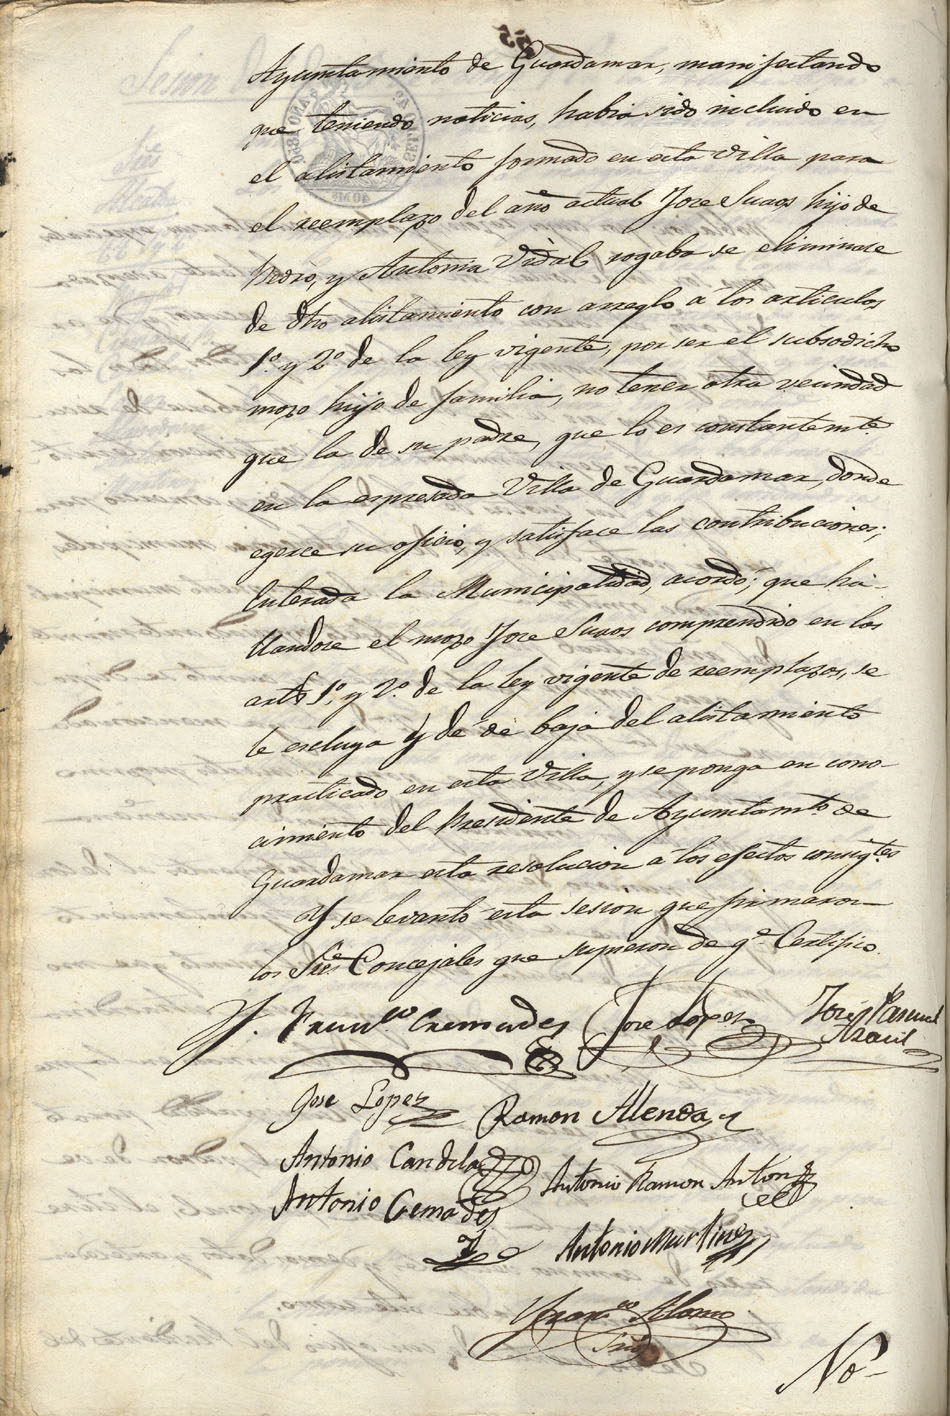 Ayuntamiento de Guardamar, manifestando
que teniendo noticias, habia sido incluido en
el alistamiento formado en esta Villa para
el reemplazo del año actual Jose Suaos hijo de
Pedro, y Antonia Vidal rogaba se eliminase
de dho alistamiento con arreglo a los articulos
1º y 2º de la ley vigente, por ser el susodicho
mozo hijo de familia, no tener otra vecindad
que la de su padre, que lo es constantemte.
en la espresada Villa de Guardamar, donde
egerce su oficio, y satisface las contribuciones;
Enterada la Municipalidad, acordó; que ha-
llandose el mozo Jose Suaos comprendido en los
arts 1º y 2º de la ley vigente de reemplazos, se
le escluya y de de baja del alistamiento
practicado en esta Villa, y se ponga en cono-
cimiento del Presidente de Ayuntamto. de
Guardamar esta resolucion a los efectos consigtes.
Y se levantó esta sesion que firmaron
los Sres. Concejales que supieron de qe. Certifico.
Franco Cremades Jose Lopez José Pascual
Jose Lopez Ramon Alenda y
Antonio Candela Antonio Ramon Anton
Antonio Cremades
Antonio Martinez
Franco Alonso
Srio
No-